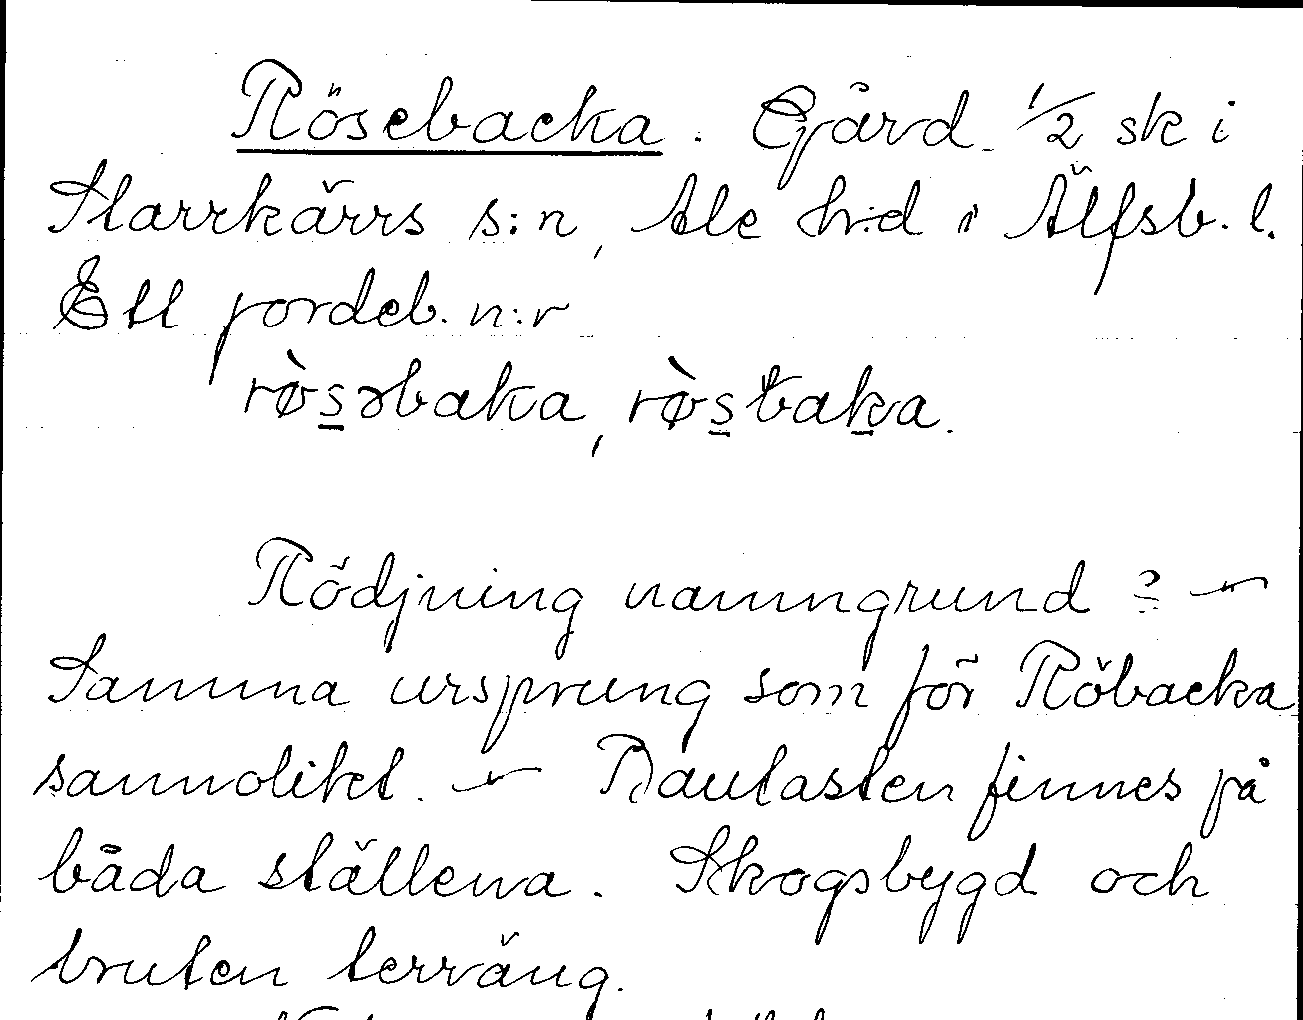 Rösebacka. Gård 1/2 sk i
Starrkärrs s:n, Ale h:d i Älfsb. l.
Ett jordeb. n:r
rø̀səbaka, rø̀sbaka.
Rödjning namngrund? —
Samma ursprung som för Röbacka
sannolikt. — Bautasten finnes på
båda ställena. Skogsbygd och
bruten terräng.